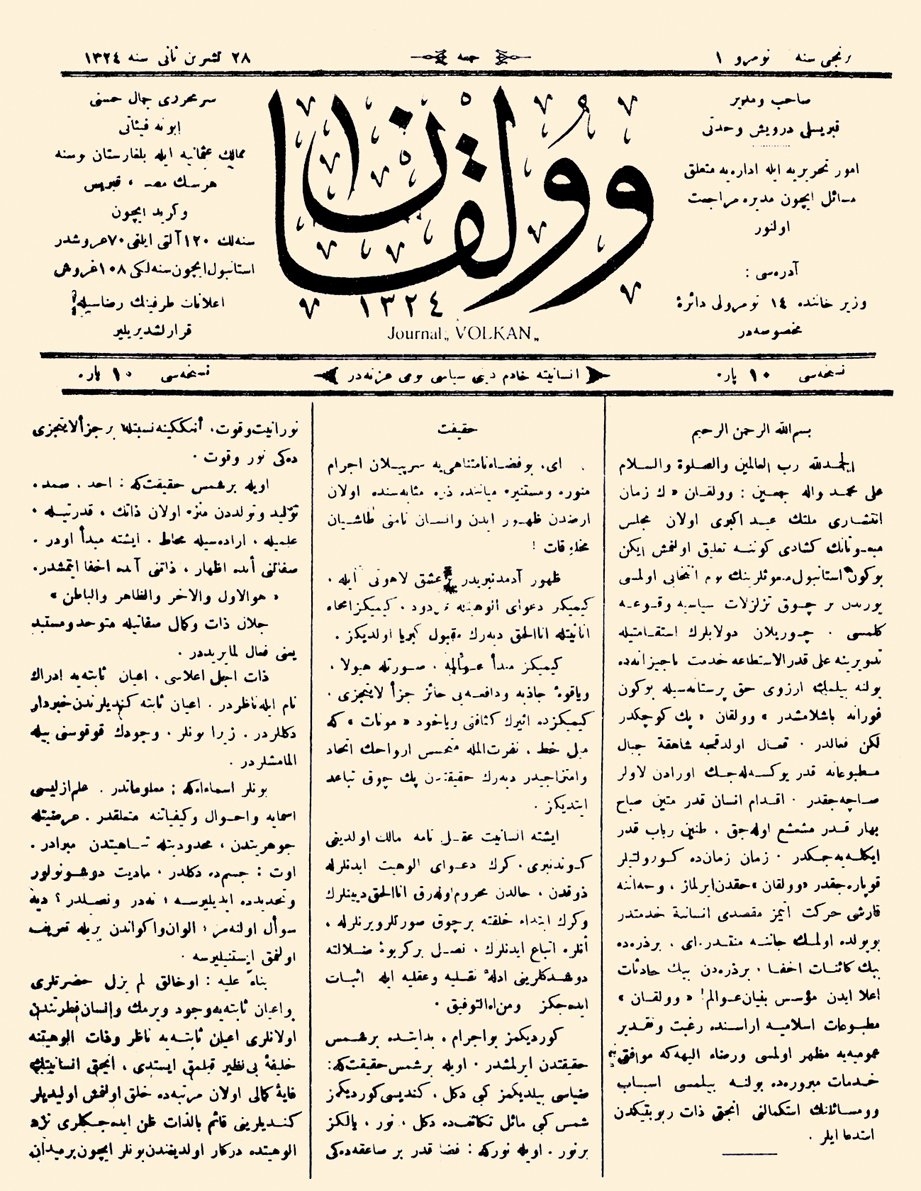 برنجی سنه نومرو ١
جمعه
٢٨ تشرین ثانی سنه ١٣٢٤
صاحب ومدیر
قبریسلی درویش وحدتی
امور تحریریه ایله اداره‌یه متعلق
مسائل ایچون مدیره مراجعت
اولنور
آدره‌سی :
وزیر خاننده ١٤ نومرولی دائرهٔ
مخصوصه‌در
وولقان
١٣٢٤
Journal „ VOLKAN „
سرمحرری جمال حسنی
ابونه فیئاتی
ممالك عثمانیه ایله بلغارستان بوسنه
هرسك مصر ، قبریس
وكرید ایچون
سنه‌لك ١٢٠ آلتی ایلغی ٧٠ غروشدر
استانبول ایچون سنه‌لكی ١٠٨ غروش
اعلانات طرفینك رضاسیله
قرارلشدیریلیر
نسخه‌سی ١٠ پاره
انسانیته خادم دینی سیاسی یومی غزته‌در
نسخه‌سی ١٠ پاره
بسم الله الرحمن الرحیم
الحمدلله رب العالمین والصلوة والسلام
علی محمد واله جمعین : وولقان « ك زمان
انتشاری ملتك عید اكبری اولان مجلس
مبعوثانك كشادی كوننه تعلیق اولنمش ایكن
بوكون استانبول مبعوثلرینك یوم انتخابی اولمسی
یوزندن بر چوق تزلزلات سیاسیه وقوعه
كلمسی . چوریلان دولابلرك استقامتیله
تدویرینه علی قدر الاستطاعه خدمت ناچیزانه‌ده
بولنه بیلمك ارزوی حق پرستانه‌سیله بوكون
فورانه باشلامشدر » وولقان « پك كوچكدر
لكن فعالدر . قعال اولدقجه شاهقهٔ جبال
مطبوعاته قدر یوكسه‌له‌جك اورادن لاولر
صاچه‌جقدر . اقدام انسان قدر متین صباح
بهار قدر مشعشع اوله‌جق . طنین رباب قدر
ایكله‌یه‌جكدر . زمان زمان‌ده كورولتیلر
قوپاره‌جقدر «وولقان» حقدن ایرلماز ، وجدانه
قارشی حركت ایتمز مقصدی انسانیته خدمتدر
بویولده اولمك جاننه منقدر. ای ، برذره‌ده
بیك كائنات اخفا ، برذره‌دن بیك حادثات
اعلا ایدن مؤسس بنیان عوالم ! « وولقان »
مطبوعات اسلامیه اراسنده رغبت وتقدیر
عمومیه‌یه مظهر اولمسی ورضاء الهیه‌كه موافق
خدمات مبروره‌ده بولنه بیلمسی اسباب
ووسائلنك استكمالنی انجق ذات ربوبیتكدن
استدعا ایلر .
حقیقت
ای ، بو فضاء نامتناهی‌یه سرپیلان اجرام
منوره ومستنیره میاننده ذره مثابه‌سنده اولان
ارضدن ظهور ایدن وانسان نامنی طاشیان
مخلوقات !
ظهور آدمدنبریدر عشق لاهوتی ایله ،
كیمیكز دعوای الوهیته بودود . كیمیكز امحاء
انانیتله اناالحق دیه‌رك مقبول كبریا اولدیكز .
كیمیكز مبدأ عوالمه . صورتله هیولا ،
ویاقوهٔ جاذبه ودافعه‌یی حائز جزأ لایتجزی .
كیمیكزده اثیرك كثافتی ویاخود « مونات » كه
میل خط ، نفرت الله متحسس ارواحك اتحاد
وامتزاجیدر دیه‌رك حقیقتدن پك چوق تباعد
ایتدیكز .
ایشته انسانیت عقل نامه مالك اولدیغی
كوندنبری . كرك دعوای الوهیت ایدنلرله
ذوقدن ، حالدن محروم اوله‌رق اناالحق دینلرك
وكرك ابتداء خلقته برچوق صورتلر ویرنلرله ،
آنلره اتباع ایدنلرك ، نصل بر كریوهٔ ضلالته
دوشدكلرینی ادلهٔ نقلیه وعقلیه ایله اثبات
ایده‌جكز ومن الله التوفیق .
كوردیكمز بو اجرام ، بدایتده بر شمس
حقیقتدن ایرلمشدر . اویله بر شمس حقیقت كه :
ضیاسی بیلدیكمز كبی دكل ، كندیسی كوردیكمز
شمس كبی مائل تكاثفه‌ده دكل ، نور ، یالكز
برنور . اویله نوركه : فضا قدر بر صاعقه‌ده‌كی
نورانیت وقوت ، آنك‌كینه نسبتله بر جزأ لایتجزی
ده‌كی نور وقوت .
اویله برشمس حقیقت‌كه : احد . صمد .
تولید وتولددن منزه اولان ذاتك ، قدرتیله ،
علمیله ، اراده‌سیله محاط . ایشته مبدأ اودر .
صفاتنی آنده اظهار ، ذاتنی آنده اخفا ایتمشدر.
« هوالاول والاخر والظاهر والباطن »
جلال ذات وكمال صفاتیله متوحد ومستبد
یعنی فعال لما یریددر .
ذات اجل اعلاسی ، اعیان ثابته‌یه ادراك
نام ایله ناظردر . اعیان ثابته كندیلرندن خبردار
دكللردر . زیرا بونلر ، وجودك قوقوسنی بیله
المامشلردر .
بونلر اسماءدركه : معلوماتدر . علم ازلیسی
اسمایه واحوال وكیفیاتنه متعلقدر . عرضیتله
جوهریتدن ، محدودیتله تناهیتدن مبرادر .
اوت : جسم‌ده دكلدر . مادیت دوشونولور
وتحدیدده ایدیلیرسه ؛ نه‌در ونصلدر ؟ دیه
سوأل اولنه‌مز ؛ الوان واكواندن بریله تعریف
اولنمق ایستنیلیرسه .
بناءً علیه : اوخالق لم یزل حضرتلری
بو اعیان ثابته‌یه وجود ویرمك وانسان فطرتندن
اولانلری اعیان ثابته‌یه ناظر وذات الوهیتنه
خلیفهٔ بی نظیر قیلمق ایستدی ، انجق انسانیتك
غایهٔ كمالی اولان مرتبه‌ده خلق اولنمش اولیدیلر
كندیلرینی قائم بالذات ظن ایده‌جكلری نزد
الوهیتده دركار اولدیغندن بونلر ایچون برمیدان